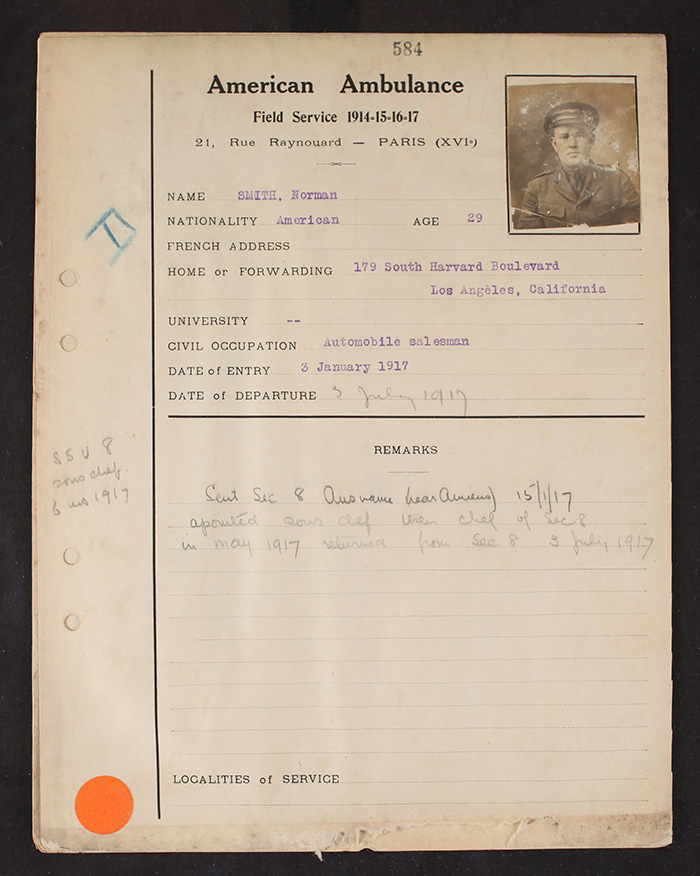 584
American Ambulance
Field Service 1914-15-16-17
21, Rue Raynouard — PARIS (XVIe)
NAME SMITH, Norman
NATIONALITY American AGE 29
FRENCH ADDRESS
HOME or FORWARDING 179 South Harvard Boulevard
Los Angèles, California
UNIVERSITY --
CIVIL OCCUPATION Automobile salesman
DATE of ENTRY 3 January 1917
DATE of DEPARTURE 3 July 1917
REMARKS
SSU 8
sous chef.
6 ms 1917
Sent Sec 8 (near Amiens) 15/1/17
apointed sous chef then chef of Sec 8
in May 1917 returned from Sec 8 3 July 1917
LOCALITIES of SERVICE